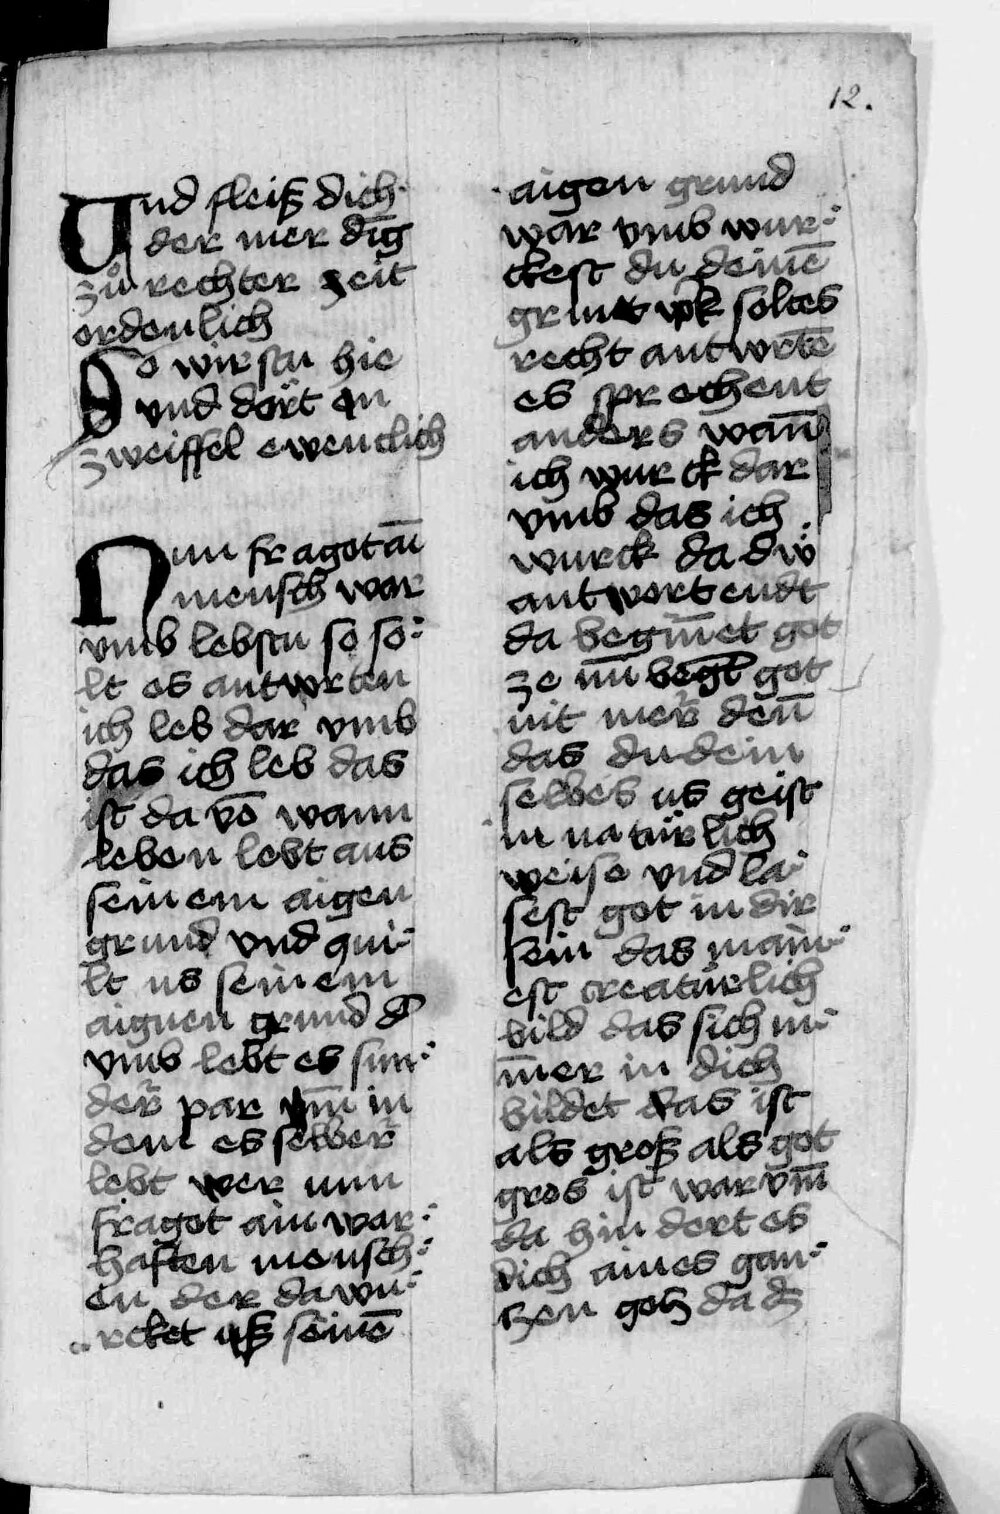 12.
Und fleiß dich
der mer dīg
zů rechter zeit
ordenlich
So wirstu hie
vnd dört on
zweiffel ewencklich
Nun fragot aī
mensch war
vmb lebstu so so⸗
lt es antwrten
ich leb dar vmb
das ich leb das
ist da vō wann
leben lebt aus
seinem aigen
grund vnd qui⸗
lt us seinem
aignen grund d
vmb lebt es sun⸗
der par vm̄ in
dem es selber
lebt wer nun
fragot ain war⸗
haften mensch⸗
en der da wu⸗
rcket uß seinē
aigen grund
war vmb wur⸗
ckest du deinē
grunt wk soltes
recht antwrtē
es sprechent
anders wan̄
ich wurck dar
vmb das ich
wurck da dw
antwortendt
da begin̄et got
ze nu begt got
nit mer den̄
das du dein
selbes us geist
in natürlich
weise vnd la⸗
sest got in dir
sein das main⸗
est creatürlich
bild das sich in⸗
m̄er in dich
bildet das ist
als groß als got
gros ist war vm̄
da hindert es
dich aines gan⸗
zen goh da dz